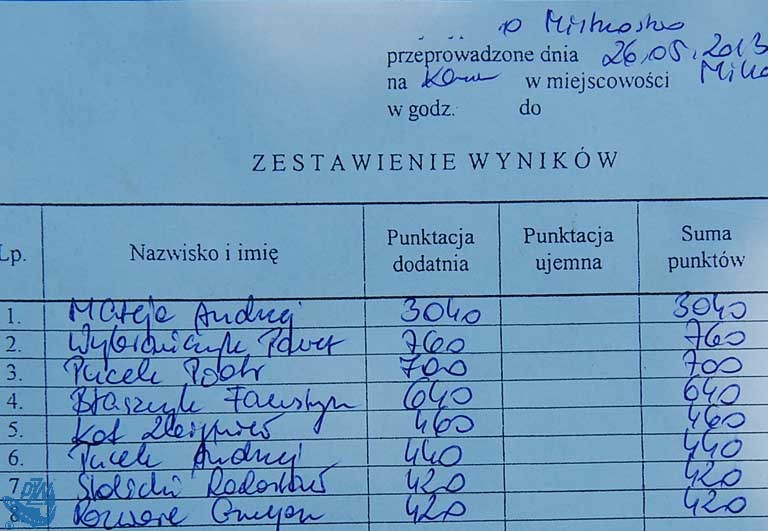 o Mistrzostwo
przeprowadzone dnia 26.05.2013
na w miejscowości
w godz. do
ZESTAWIENIE WYNIKÓW
Lp. Nazwisko i imię Punktacja dodatnia Punktacja ujemna Suma punktów
1. Mateja Andrzej 3040 3040
2. Paweł 760 760
3. Pucek Piotr 700 700
4. Błaszczyk Faustyn 640 640
5. Kot Zbigniew 460 460
6. Pucek Andrzej 440 440
7 Radosław 420 420
8 420 420